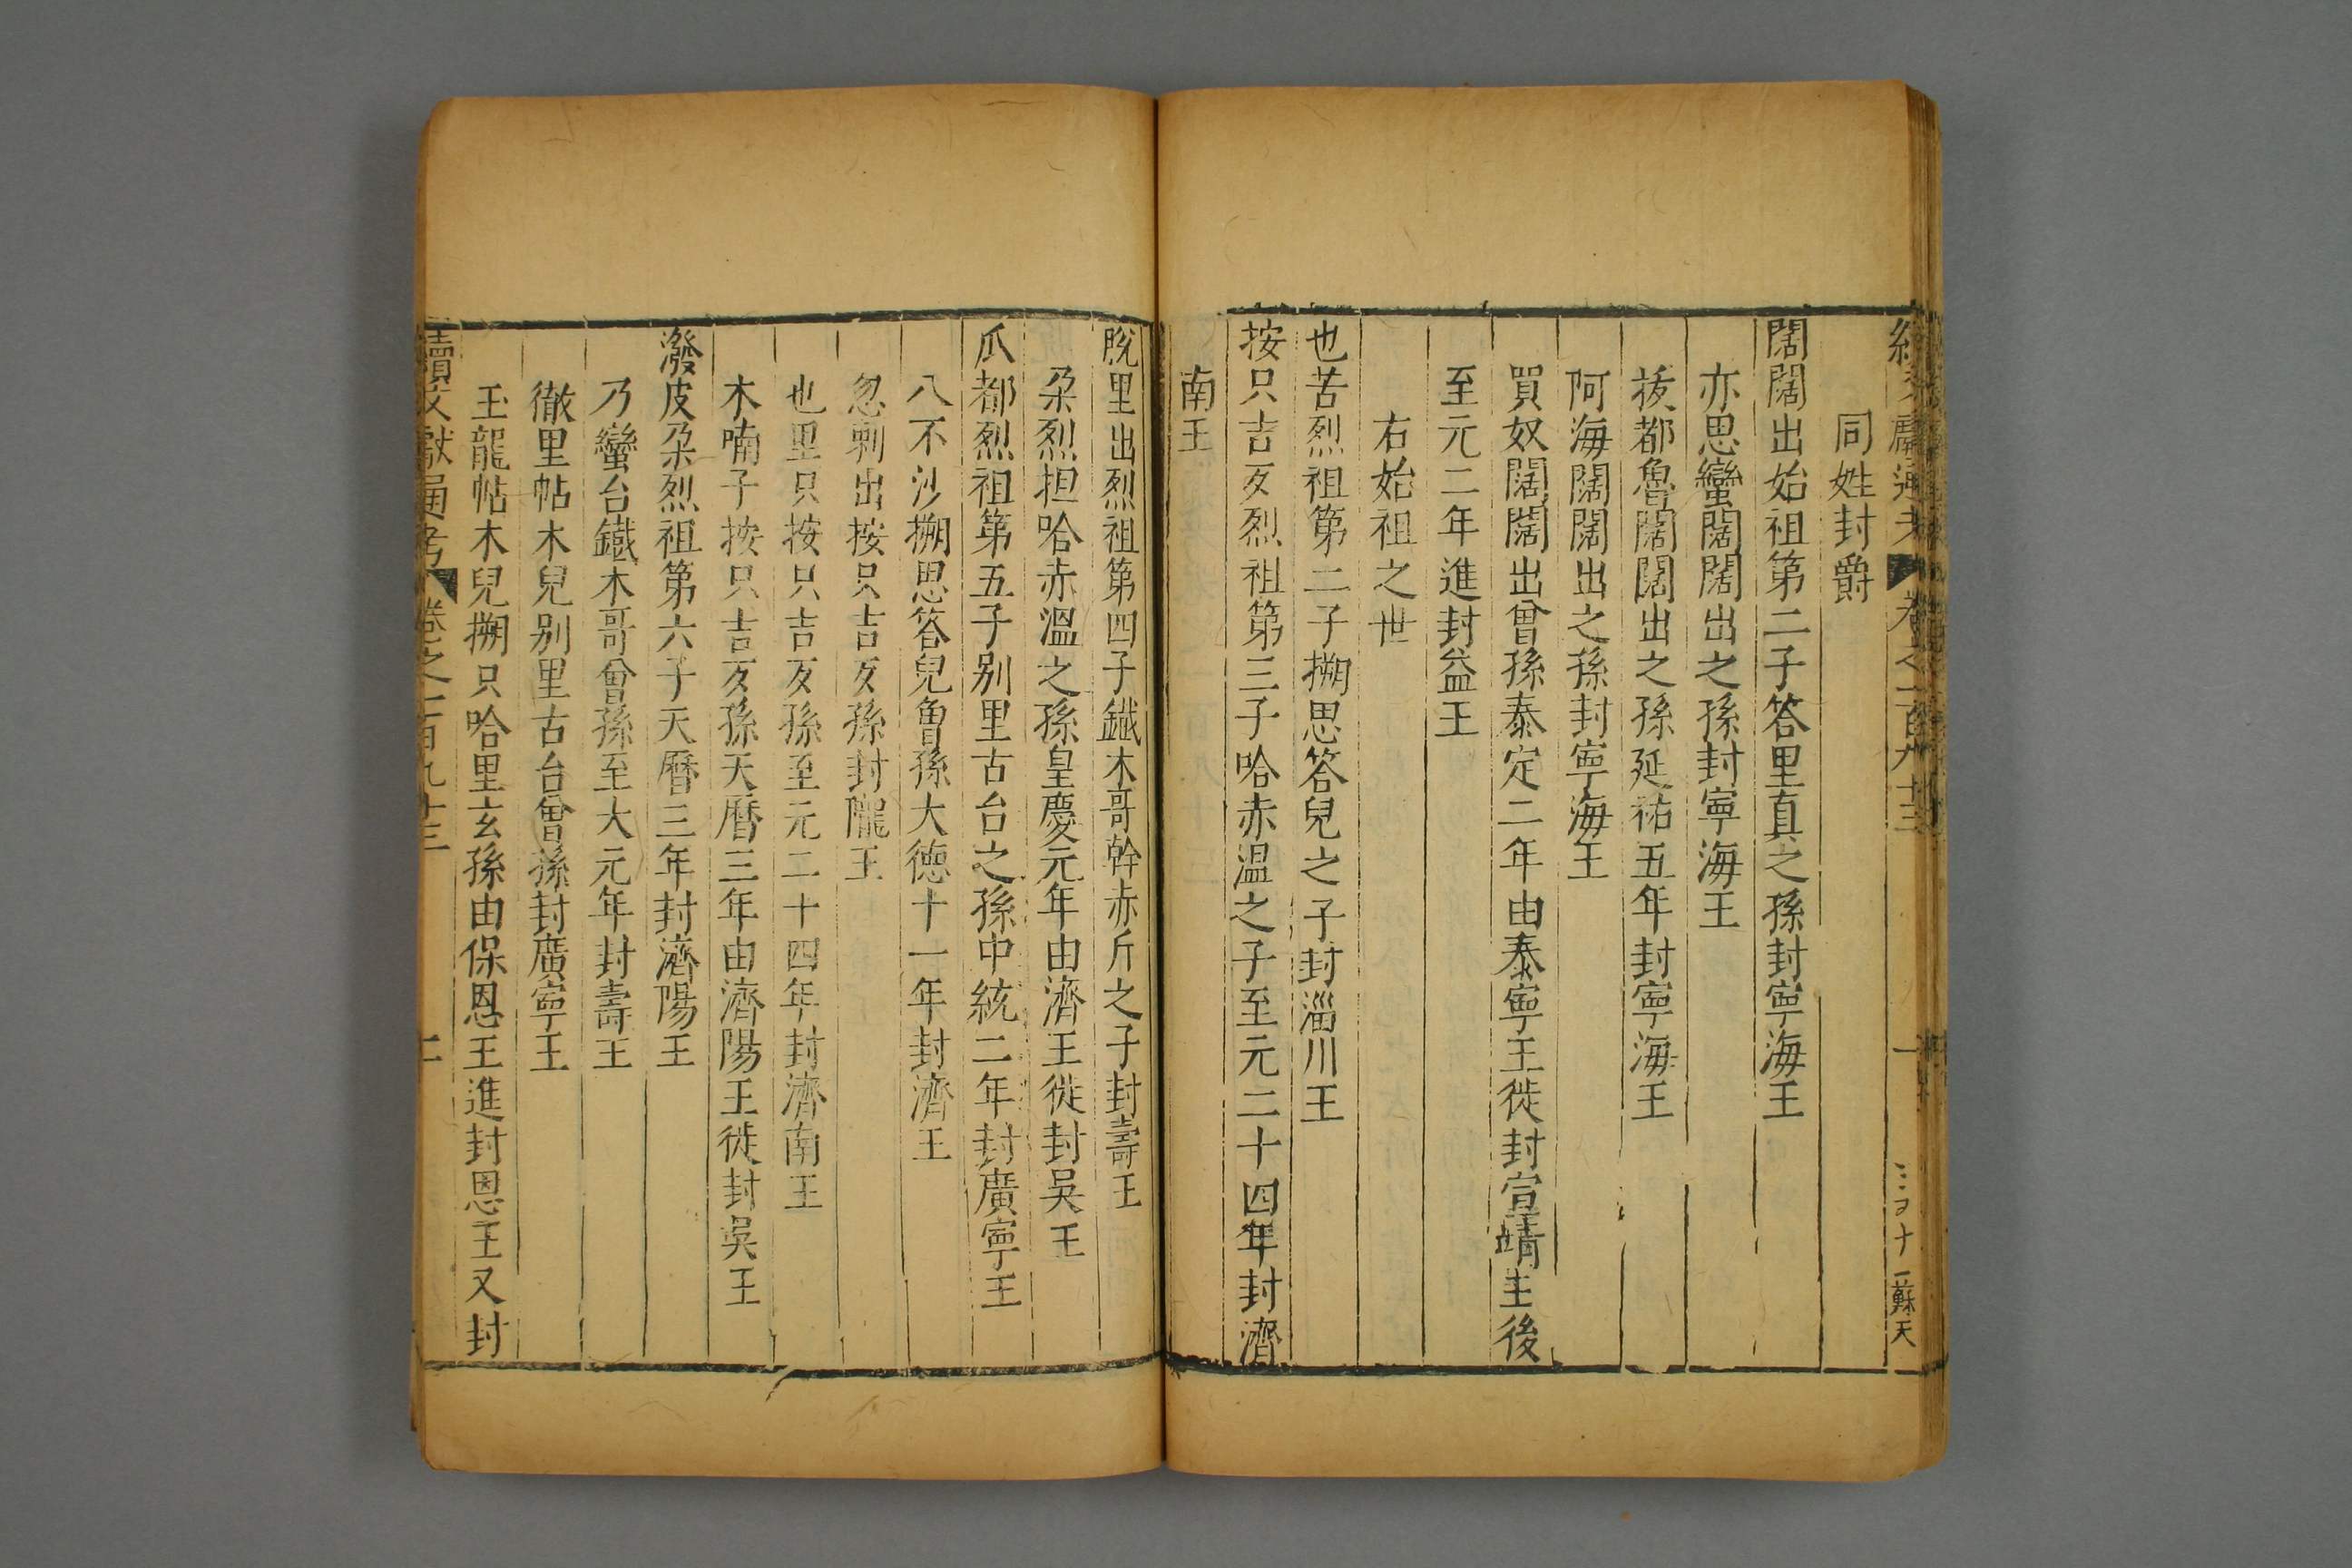 同姓封爵
闊闊出始祖第二子答里真之孫封寧海王
亦思蠻闊闊出之孫封寧海王
拔都魯闊闊出之孫延祐五年封寧海王
阿海闊闊出之孫封寧海王
買奴闊闊出曾孫泰定二年由泰寧王徙封宣靖王後
至元二年進封益王
右始祖之世
也苦烈祖第二子搠思答兒之子封淄川王
按只吉歹烈祖第三子哈赤温之子至元二十四年封濟
南王
脫里出烈祖第四子鐵木哥幹赤斤之子封壽王
朶烈担哈赤溫之孫皇慶元年由濟王徙封吳王
爪都烈祖第五子别里古台之孫中統二年封廣寧王
八不沙搠思答兒魯孫大德十一年封濟王
忽剌出按只吉歹孫封隴王
也里只按只吉歹孫至元二十四年封濟南王
木喃子按只吉歹孫天曆三年由濟陽王徙封吳王
潑皮朶烈祖第六子天曆三年封濟陽王
乃蠻台鐵木哥曾孫至大元年封壽王
徹里帖木兒别里古台曾孫封廣寧王
玉龍帖木兒搠只哈里玄孫由保恩王進封恩王又封
續文獻通考 卷之一百九十三 二